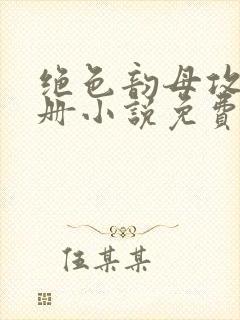 绝色韵母攻
册小说免费
伍某某